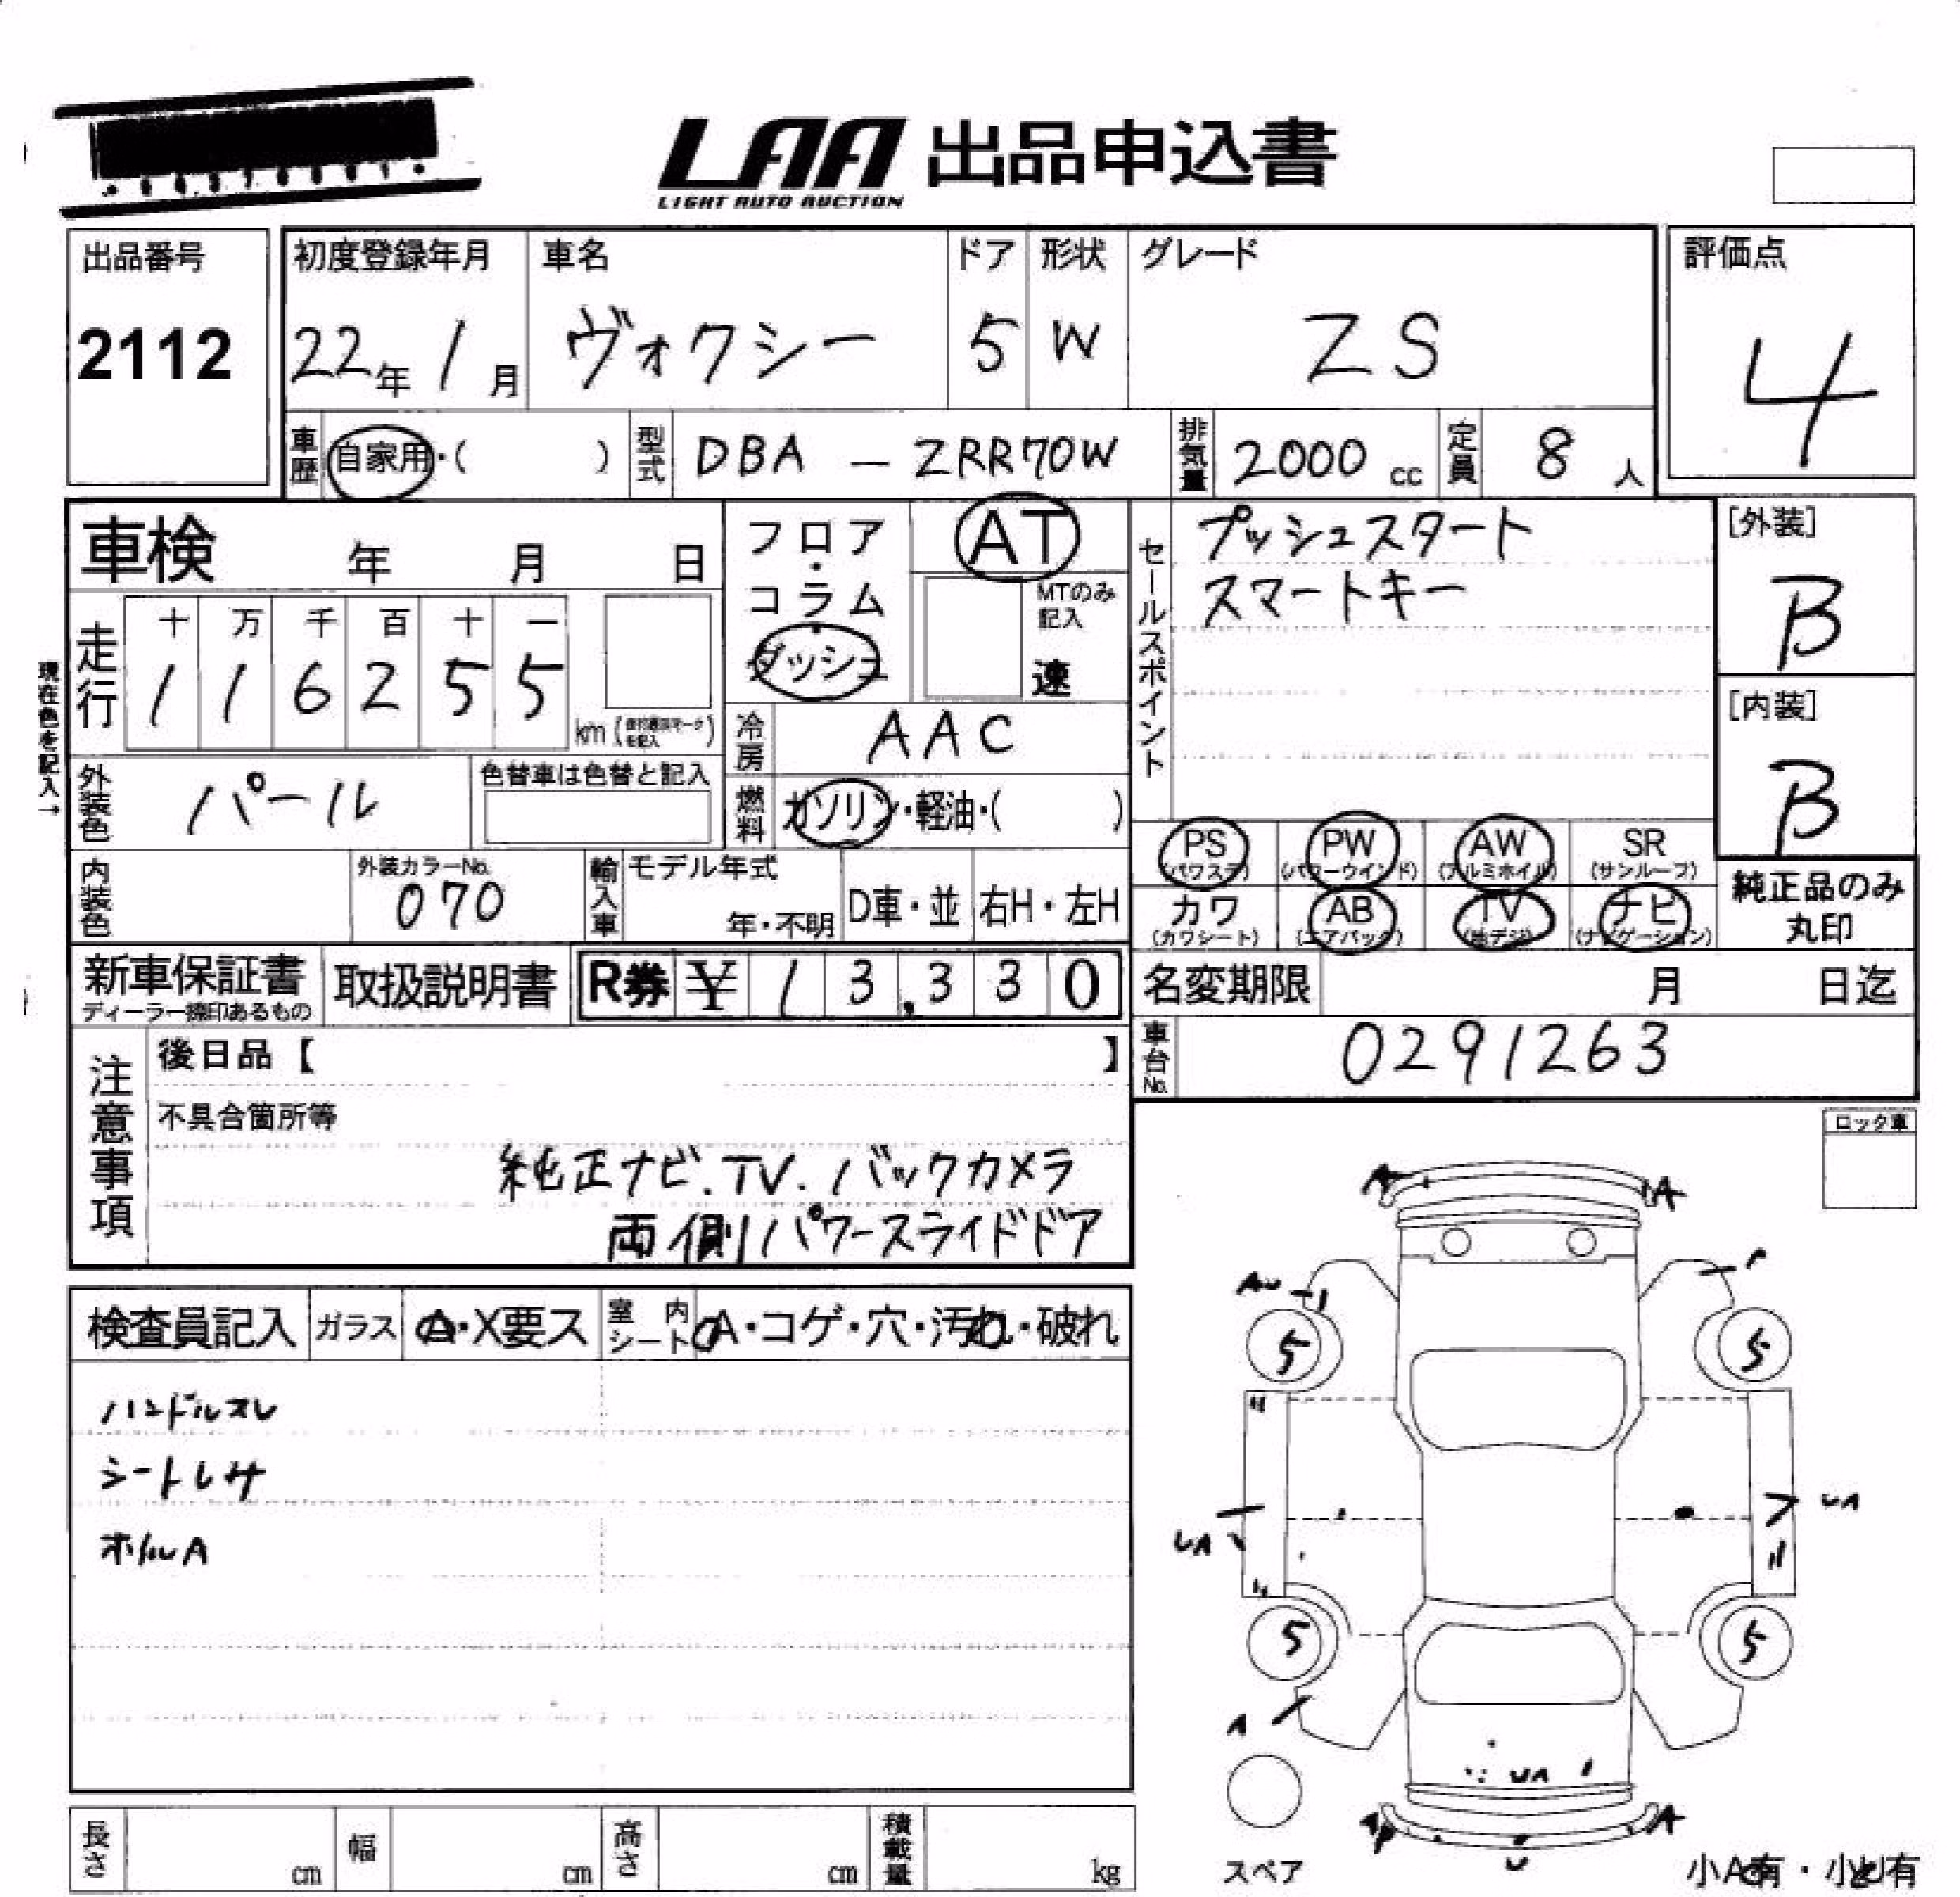 LAA 出品申込書
LIGHT AUTO AUCTION
出品番号
2112
初度登録年月
22年 1月
車名
ヴォクシー
ドア
5
形状
W
グレード
ZS
評価点
4
車歴
自家用・( )
型式
DBA - ZRR70W
排気量
2000 cc
定員
8 人
車検 年 月 日
フロア・コラム・ダッシュ
AT
MTのみ記入
速
セールスポイント
プッシュスタート
スマートキー
[外装]
B
[内装]
B
現在色を記入→
走行
十 万 千 百 十 一
1 1 6 2 5 5
km
冷房
AAC
外装色
パール
色替車は色替と記入
燃料
ガソリン・軽油・( )
内装色
外装カラーNo.
070
輸入車
モデル年式
年・不明
D車・並
右H・左H
PS (パワステ)
PW (パワーウインド)
AW (アルミホイル)
SR (サンルーフ)
カワ (カワシート)
AB (エアバック)
TV (地デジ)
ナビ (ナビゲーション)
純正品のみ
丸印
新車保証書
ディーラー捺印あるもの
取扱説明書
R券 ¥ 1 3,3 3 0
名変期限 月 日迄
車台No.
0291263
注意事項
後日品【 】
不具合箇所等
純正ナビ.TV.バックカメラ
両側パワースライドドア
ロック車
検査員記入
ガラス
A・X要ス
室内シート
A・コゲ・穴・汚れ・破れ
ハンドルスレ
シートシミ
ホイルA
A
A
5
5
UA
UA
5
5
A
UA
A
U
スペア
小A有・小U有
長さ cm
幅 cm
高さ cm
積載量 kg